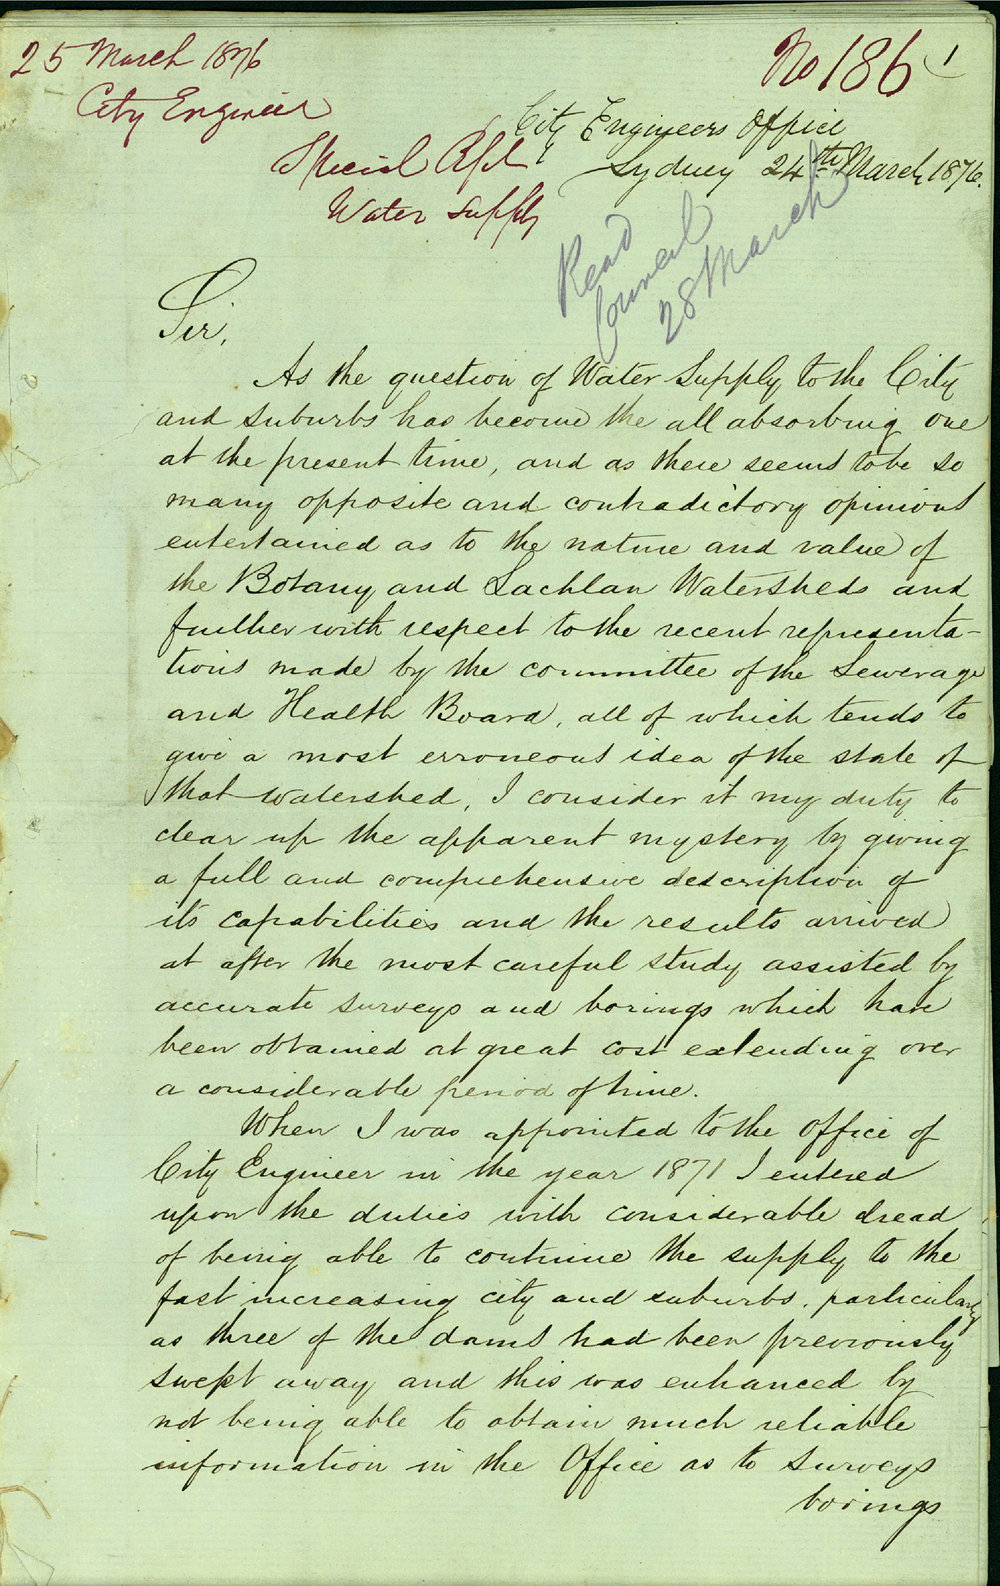 25 March 1876
No 186
1
City Engineer
City Engineers Office
Special Rept
Sydney 24th March 1876.
Water Supply
Read
Council
28 March
Sir,
As the question of Water Supply to the City
and suburbs has become the all absorbing one
at the present time, and as there seems to be so
many opposite and contradictory opinions
entertained as to the nature and value of
the Botany and Lachlan Watersheds and
further with respect to the recent representa-
tions made by the committee of the Sewerage
and Health Board, all of which tends to
give a most erroneous idea of the state of
that watershed, I consider it my duty to
clear up the apparent mystery by giving
a full and comprehensive description of
its capabilities and the results arrived
at after the most careful study assisted by
accurate surveys and borings which have
been obtained at great cost extending over
a considerable period of time.
When I was appointed to the Office of
City Engineer in the year 1871 I entered
upon the duties with considerable dread
of being able to continue the supply to the
fast increasing city and suburbs, particularly
as three of the dams had been previously
swept away and this was enhanced by
not being able to obtain much reliable
information in the Office as to surveys
borings